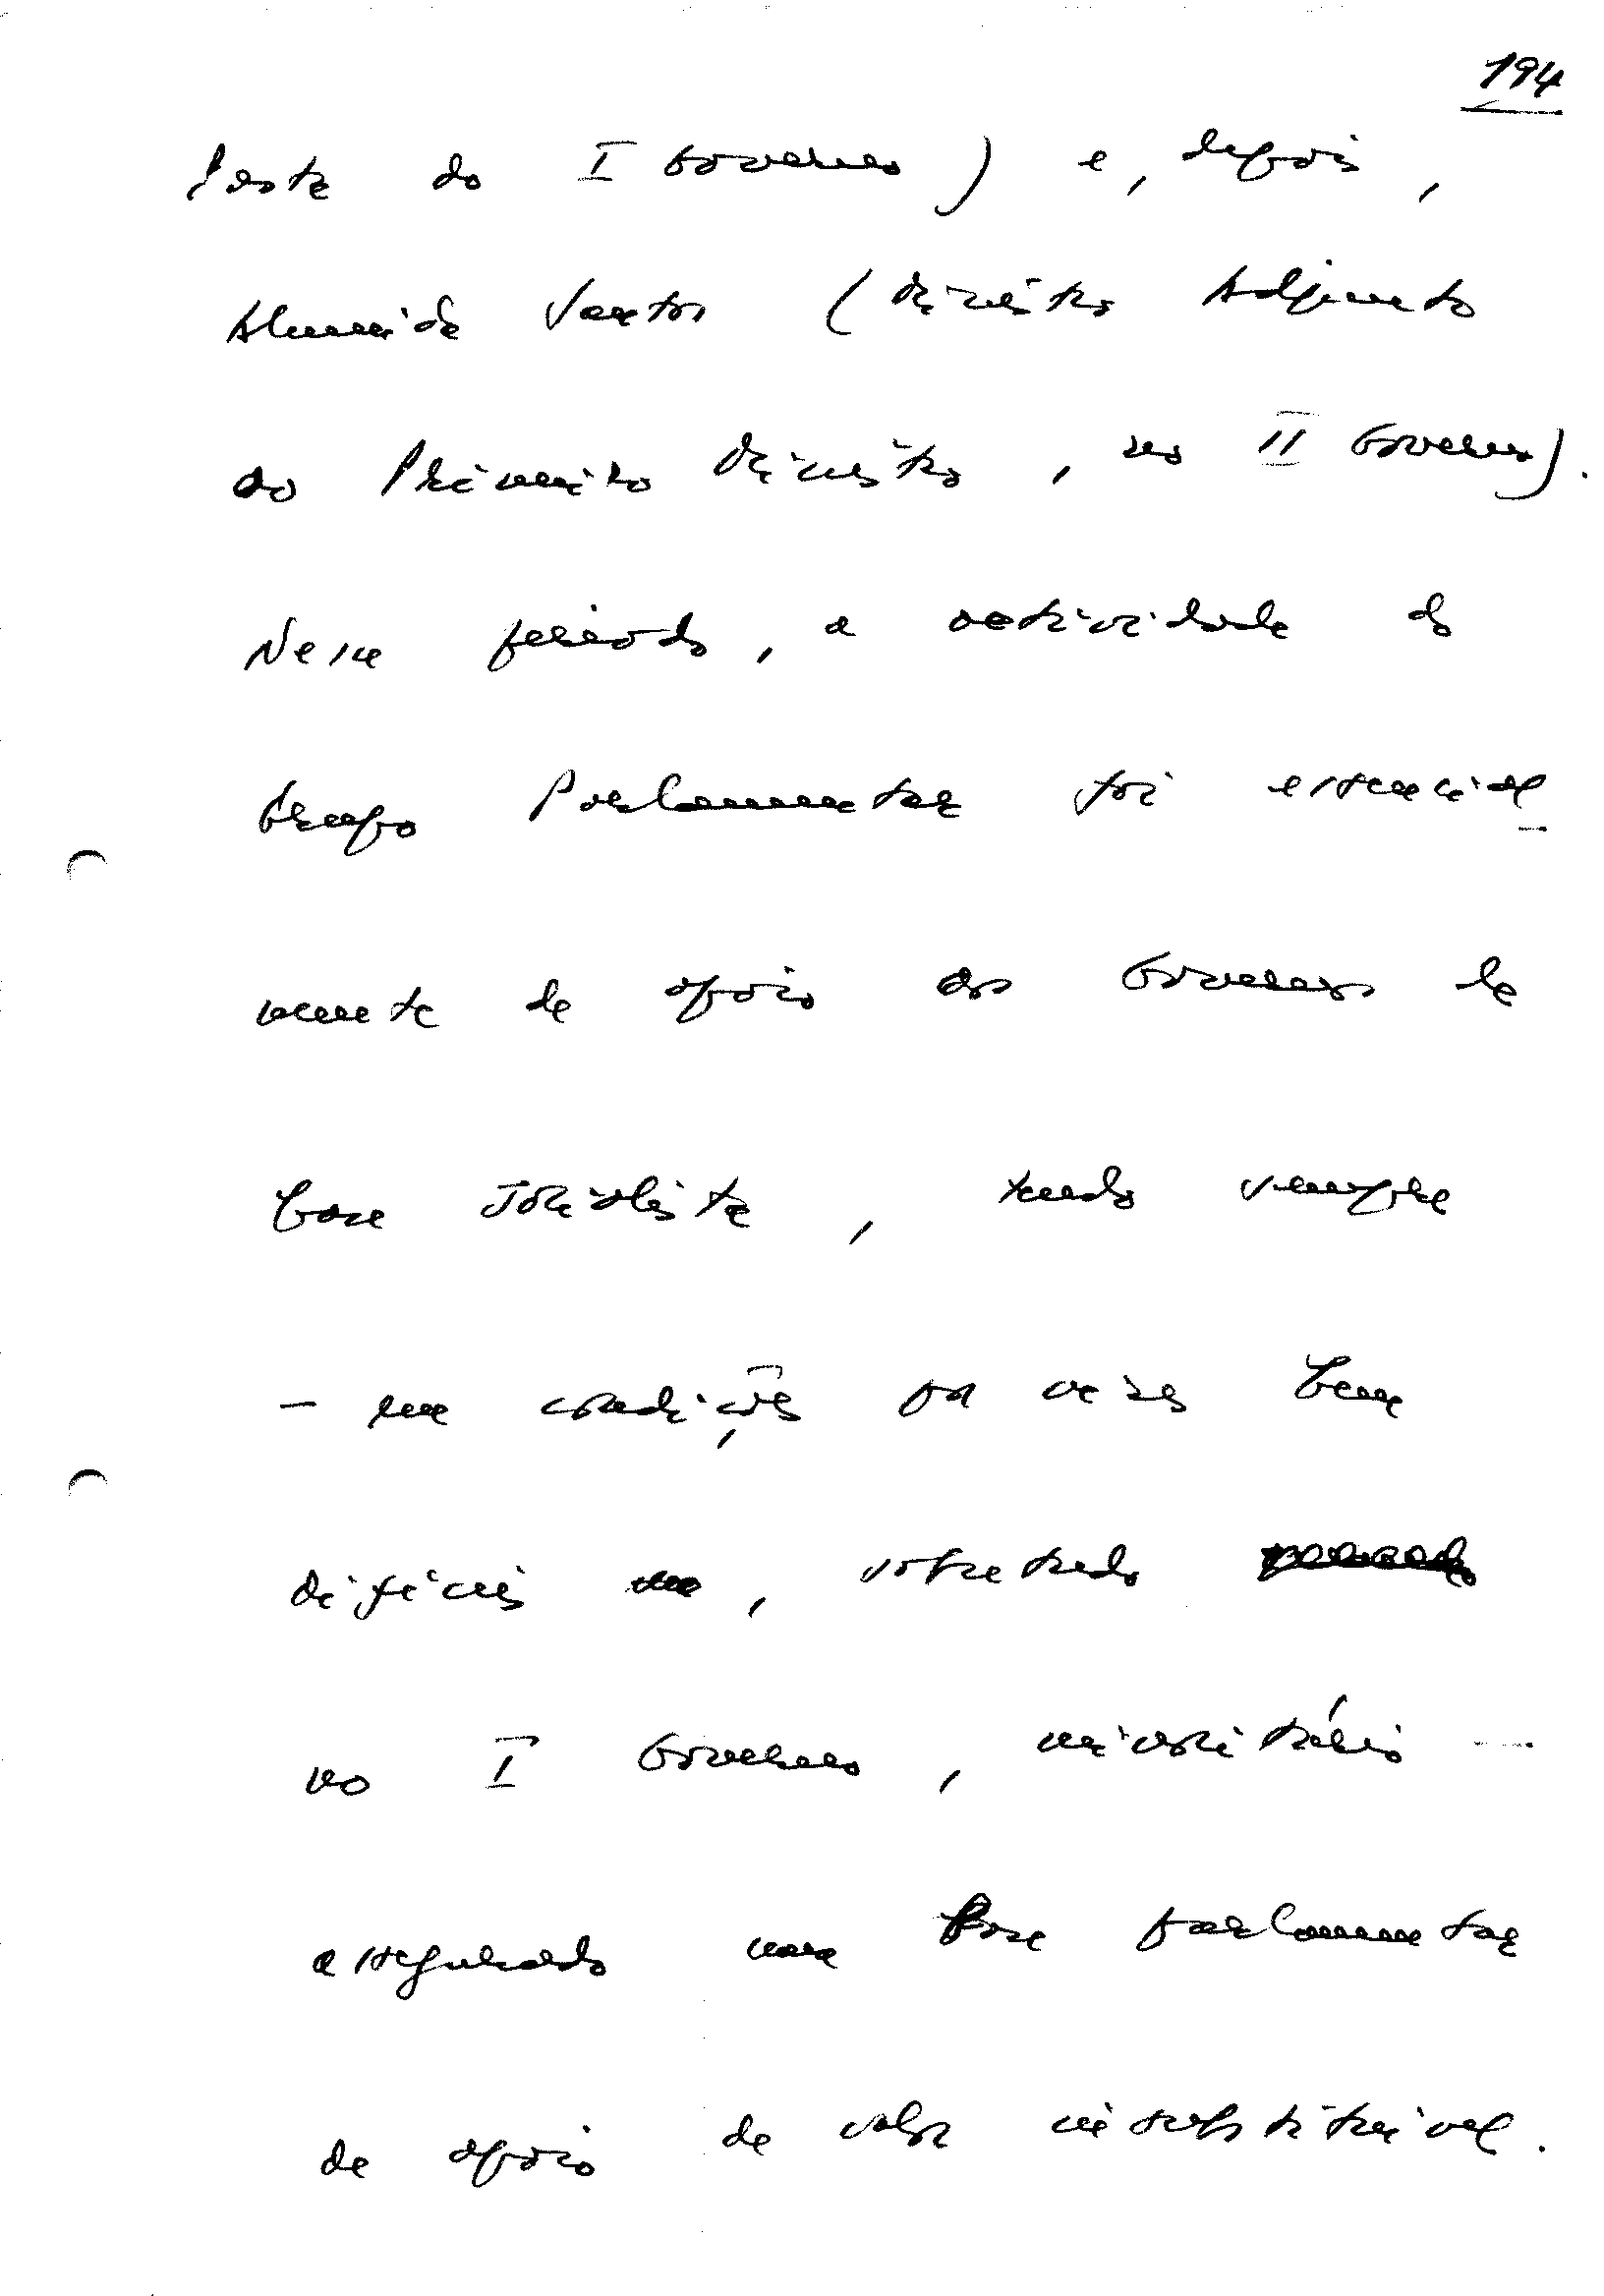 194
Pasta do I Governo) e, depois,
Almeida Santos (Ministro Adjunto
do Primeiro Ministro, no II Governo).
Nesse período, a actividade do
Grupo Parlamentar foi essencial-
mente de apoio aos Governos de
base socialista, tendo sempre
- em condições por vezes bem
difíceis, sobretudo
no I Governo, minoritário -
assegurado uma base parlamentar
de apoio de valor insubstituível.